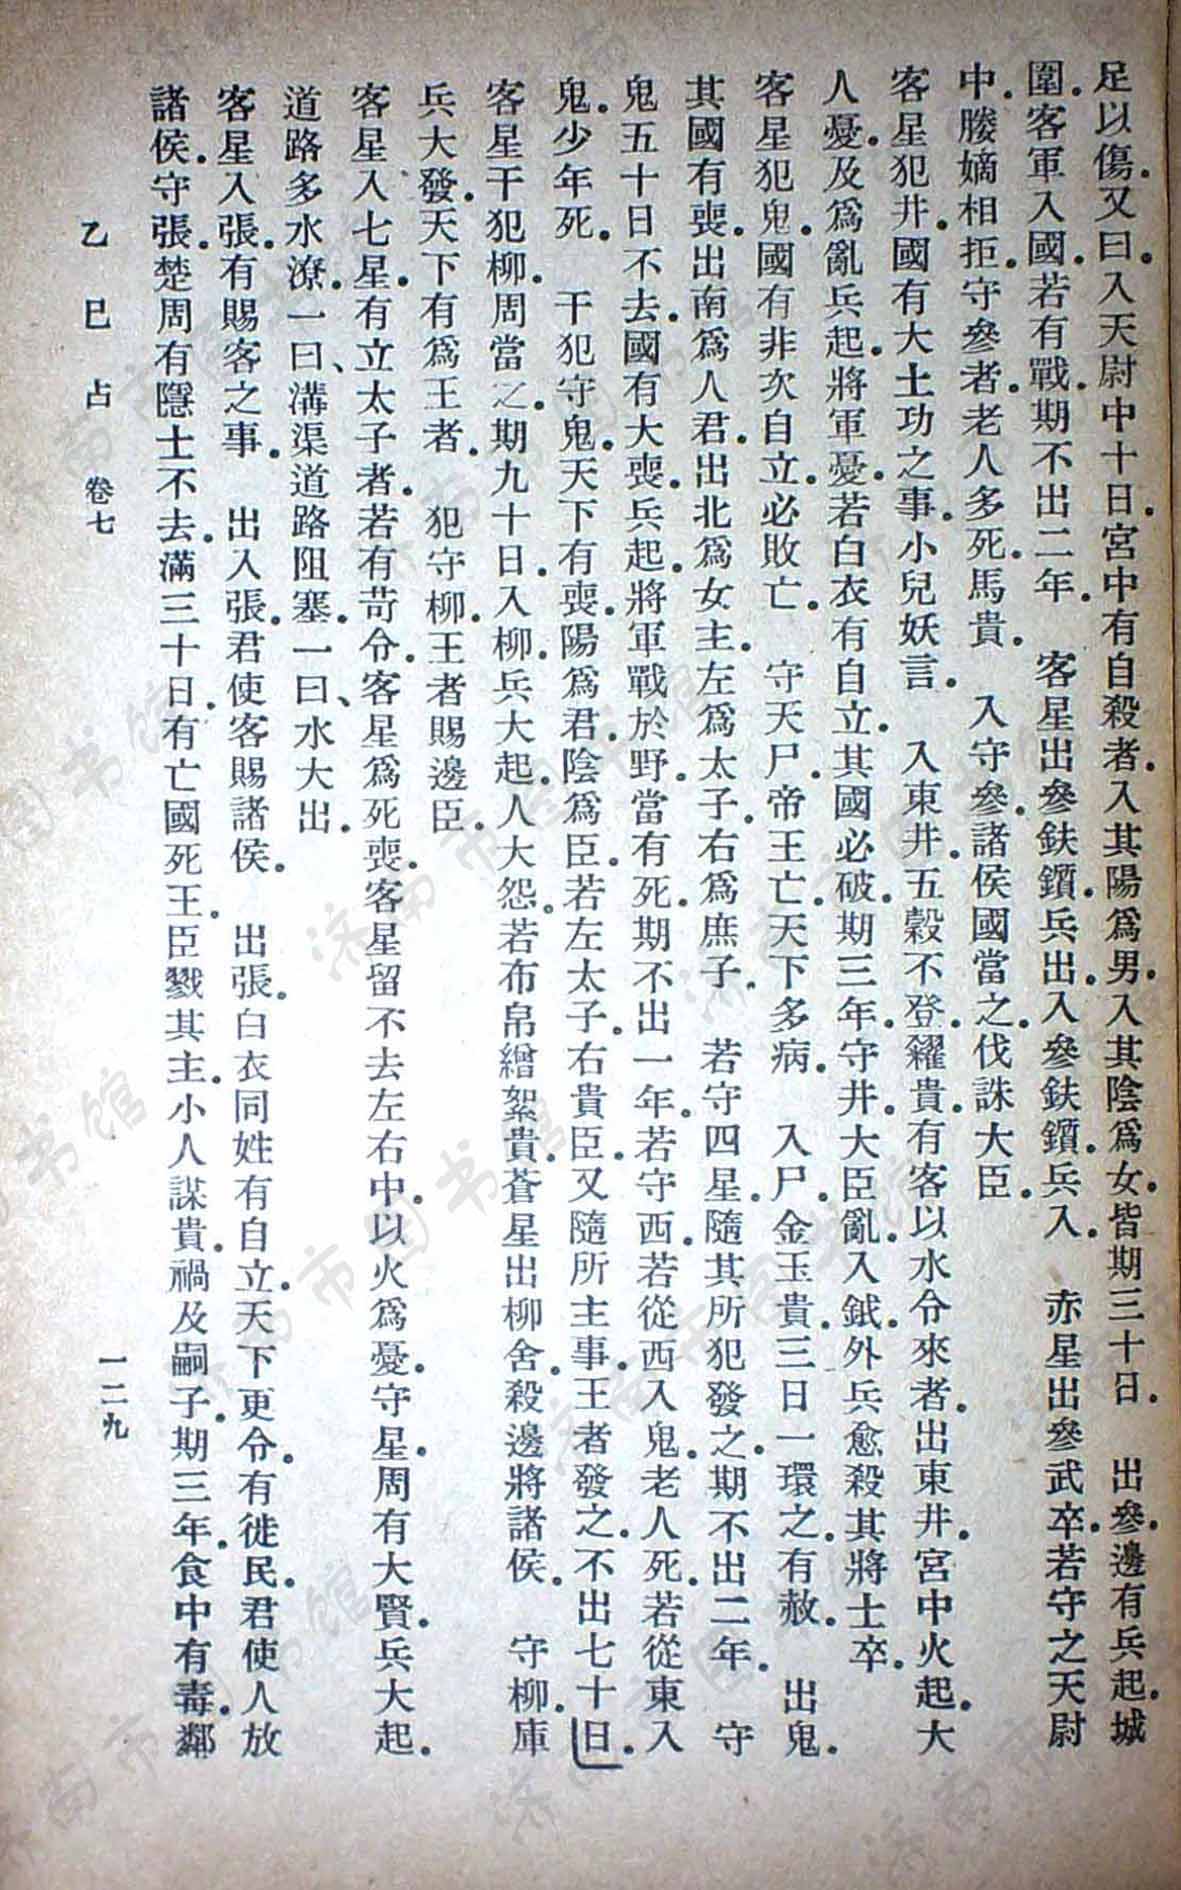 足以傷。又曰。入天尉中十日。宮中有自殺者。入其陽爲男。入其陰爲女。皆期三十日。　出參。邊有兵起。城
圍。客軍入國。若有戰。期不出二年。　客星出參鈇鑕。兵出。入參鈇鑕。兵入。　赤星出參武卒。若守之天尉
中。媵嫡相拒。守參者。老人多死。馬貴。　入守參。諸侯國當之。伐誅大臣。
客星犯井。國有大土功之事。小兒妖言。　入東井。五穀不登。糴貴。有客以水令來者。出東井。宮中火起。大
人憂。及爲亂兵起。將軍憂。若白衣有自立。其國必破。期三年。守井。大臣亂。入鉞。外兵愈殺其將士卒。
客星犯鬼。國有非次自立。必敗亡。　守天尸。帝王亡。天下多病。　入尸。金玉貴。三日一環之。有赦。　出鬼。
其國有喪。出南爲人君。出北爲女主。左爲太子。右爲庶子。　若守四星。隨其所犯發之。期不出二年。　守
鬼五十日不去。國有大喪。兵起。將軍戰於野。當有死。期不出一年。若守西。若從西入鬼。老人死。若從東入
鬼。少年死。　干犯守鬼。天下有喪。陽爲君。陰爲臣。若左太子。右貴臣。又隨所主事。王者發之。不出七十日。
客星干犯柳。周當之。期九十日。入柳。兵大起。人大怨。若布帛繒絮貴。蒼星出柳舍。殺邊將諸侯。　守柳。庫
兵大發。天下有爲王者。　犯守柳。王者賜邊臣。
客星入七星。有立太子者。若有苛令。客星爲死喪。客星留不去左右中。以火爲憂。守星。周有大賢。兵大起。
道路多水潦。一曰、溝渠道路阻塞。一曰、水大出。
客星入張。有賜客之事。　出入張。君使客賜諸侯。　出張。白衣同姓有自立。天下更令。有徙民。君使人放
諸侯。守張。楚周有隱士不去。滿三十日。有亡國死王。臣戮其主。小人謀貴。禍及嗣子。期三年。食中有毒。鄰
乙巳占　卷七　一二九
济南市图书馆